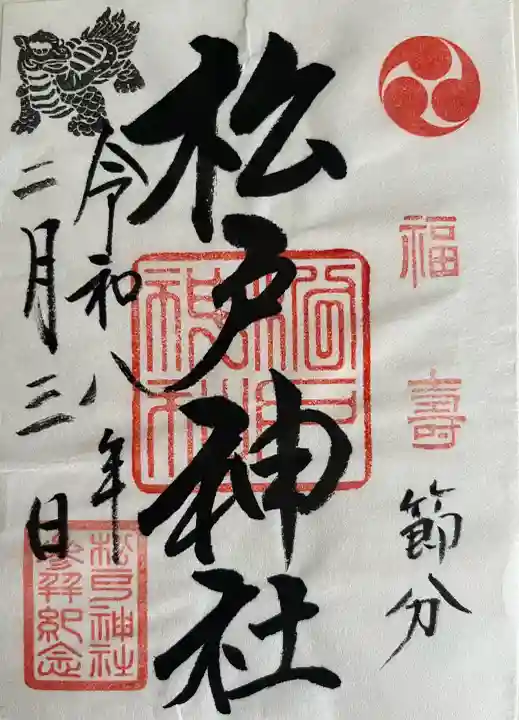 福
壽
節分
松戸神社
松戸神社
令和八年
二月三日
松戸神社
参拝紀念